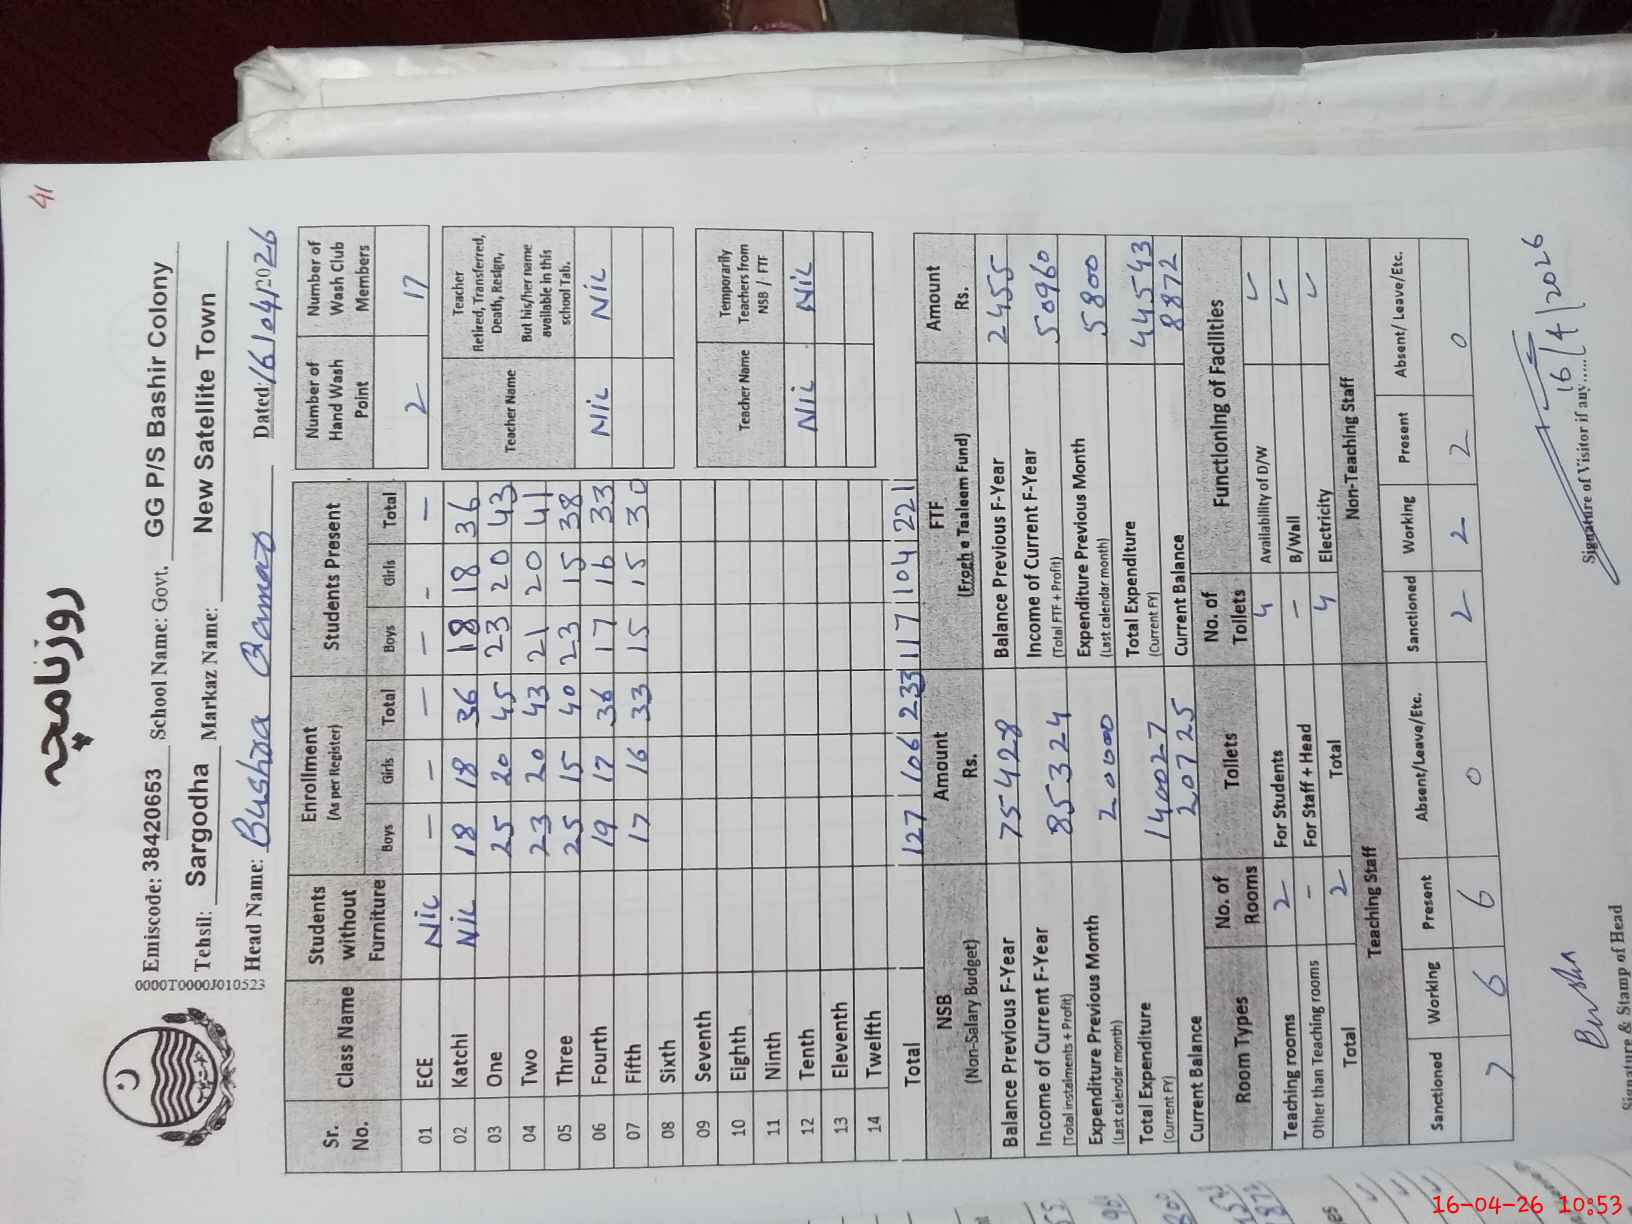 41
روزنامچہ
Emiscode: 38420653 School Name: Govt. GG P/S Bashir Colony
Tehsil: Sargodha Markaz Name: New Satellite Town
0000T0000J010523
Head Name: Bushra Qamar Dated: 16/04/2026
Sr. No. Class Name Students without Furniture Enrollment (As per Register) Students Present
Boys Girls Total Boys Girls Total
01 ECE Nil — — — — - —
02 Katchi Nil 18 18 36 18 18 36
03 One 25 20 45 23 20 43
04 Two 23 20 43 21 20 41
05 Three 25 15 40 23 15 38
06 Fourth 19 17 36 17 16 33
07 Fifth 17 16 33 15 15 30
08 Sixth
09 Seventh
10 Eighth
11 Ninth
12 Tenth
13 Eleventh
14 Twelfth
Total 127 106 233 117 104 221
Number of Hand Wash Point Number of Wash Club Members
2 17
Teacher Name Teacher Retired, Transferred, Death, Resign, But his/her name available in this school Tab.
Nil Nil
Teacher Name Temporarily Teachers from NSB / FTF
Nil Nil
NSB (Non-Salary Budget) Amount Rs. FTF (Frogh e Taaleem Fund) Amount Rs.
Balance Previous F-Year 75428 Balance Previous F-Year 2455
Income of Current F-Year (Total instalments + Profit) 85324 Income of Current F-Year (Total FTF + Profit) 50960
Expenditure Previous Month (Last calendar month) 20000 Expenditure Previous Month (Last calendar month) 5800
Total Expenditure (Current FY) 140027 Total Expenditure (Current FY) 44543
Current Balance 20725 Current Balance 8872
Room Types No. of Rooms Toilets No. of Toilets Functioning of Facilities
Teaching rooms 2 For Students 4 Availability of D/W ✓
Other than Teaching rooms - For Staff + Head – B/Wall ✓
Total 2 Total 4 Electricity ✓
Teaching Staff Non-Teaching Staff
Sanctioned Working Present Absent/Leave/Etc. Sanctioned Working Present Absent/ Leave/Etc.
7 6 6 0 2 2 2 0
Bushra
16/4/2026
Signature & Stamp of Head Signature of Visitor if any......
16-04-26 10:53